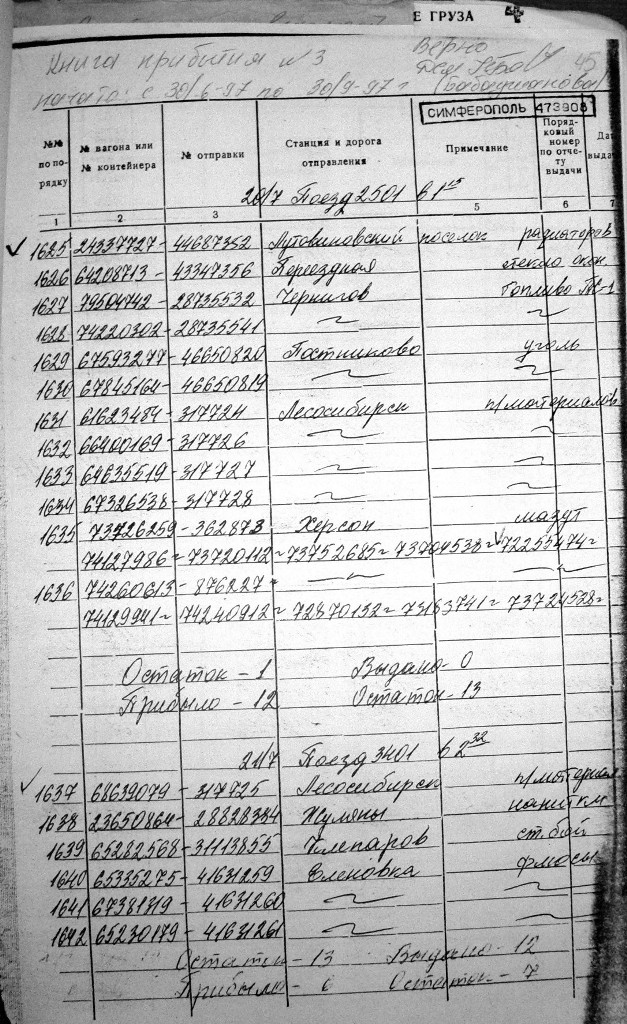 Е ГРУЗА
Книга прибытия №3
Верно
начато: с 30/6-97 по 30/9-97 г
45
СИМФЕРОПОЛЬ 473908
№№ по по- рядку
№ вагона или № контейнера
№ отправки
Станция и дорога отправления
Примечание
Поряд- ковый номер по отче- ту выдачи
Да выдач
20/7 Поезд 2501 в 1 15
1 2 3 5 6 7
1625 24337727 - 44687352 Лутовиновский поселок радиаторов
1626 64208713 - 43347356 Переездная стекло окон.
1627 79504742 - 28735532 Чернигов Топливо ТС-1
1628 74220302 - 28735541 〃 〃
1629 67593277 - 46650820 Постниково уголь
1630 67845164 - 46650819 〃 〃
1631 61623484 - 317724 Лесосибирск п/материалов
1632 66400169 - 317726 〃 〃
1633 64635519 - 317727 〃 〃
1634 67326538 - 317728 〃 〃
1635 73726259 - 362873 Херсон мазут
74127986 73720112 73752685 73704538 72255474
1636 74260613 - 876227 〃 〃
74129941 74240912 72870132 73183741 73724528
Остаток - 1 Выдано - 0
Прибыло - 12 Остаток - 13
21/7 Поезд 3401 в 2 32
1637 68639079 - 317725 Лесосибирск п/материал
1638 23650864 - 28828384 Жуляны напитки
1639 65282568 - 31113855 Клепаров ст. бой
1640 65335275 - 41631259 Еленовка флюсы
1641 67381319 - 41631260 〃 〃
1642 65230179 - 41631261 〃 〃
Остаток - 13 Выдано - 12
Прибыло - 6 Остаток - 7